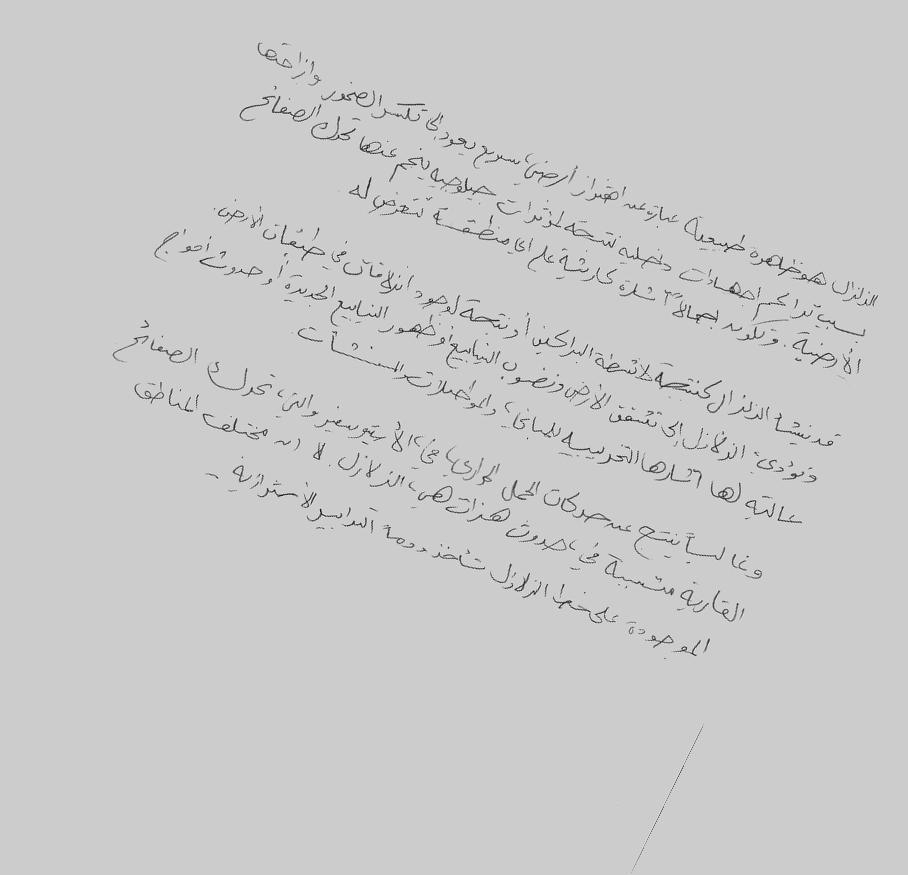 الزلزال هو ظاهرة طبيعية عبارة عن اهتزاز أرضي، سريع يعود إلى تكسر الصخور وإزاحتها
بسبب تراكم اجهادات داخلية نتيجة لمؤثرات جيلوجيه ينجم عنها تحرك الصفائح
الأرضية. وتكون اجمالاً آثاره كارثية على اي منطقة تتعرض له
قد نيشأ الزلزال كنتيجة لانشطة البراكين أو نتيجة لوجود انزلاقات في طبقات الأرض.
وتؤدي: الزلازل إلى تشقق الأرض ونضوب الينابيع أو ظهور الينابيع الجديدة أو حدوث أمواج
عالية لها آثارها التخريبيه للمباني، والمواصلات والمنشأت.
وغالباً ينتج عن حركات الحمل الحراري، في، الأستيوسفير والتي، تحرك الصفائح
القارية متسببة في، حدوث هزات هي، الزلازل. لا ان مختلف المناطق
الموجودة على خط الزلازل تأخذ دوماً التدابير الأستزازية -